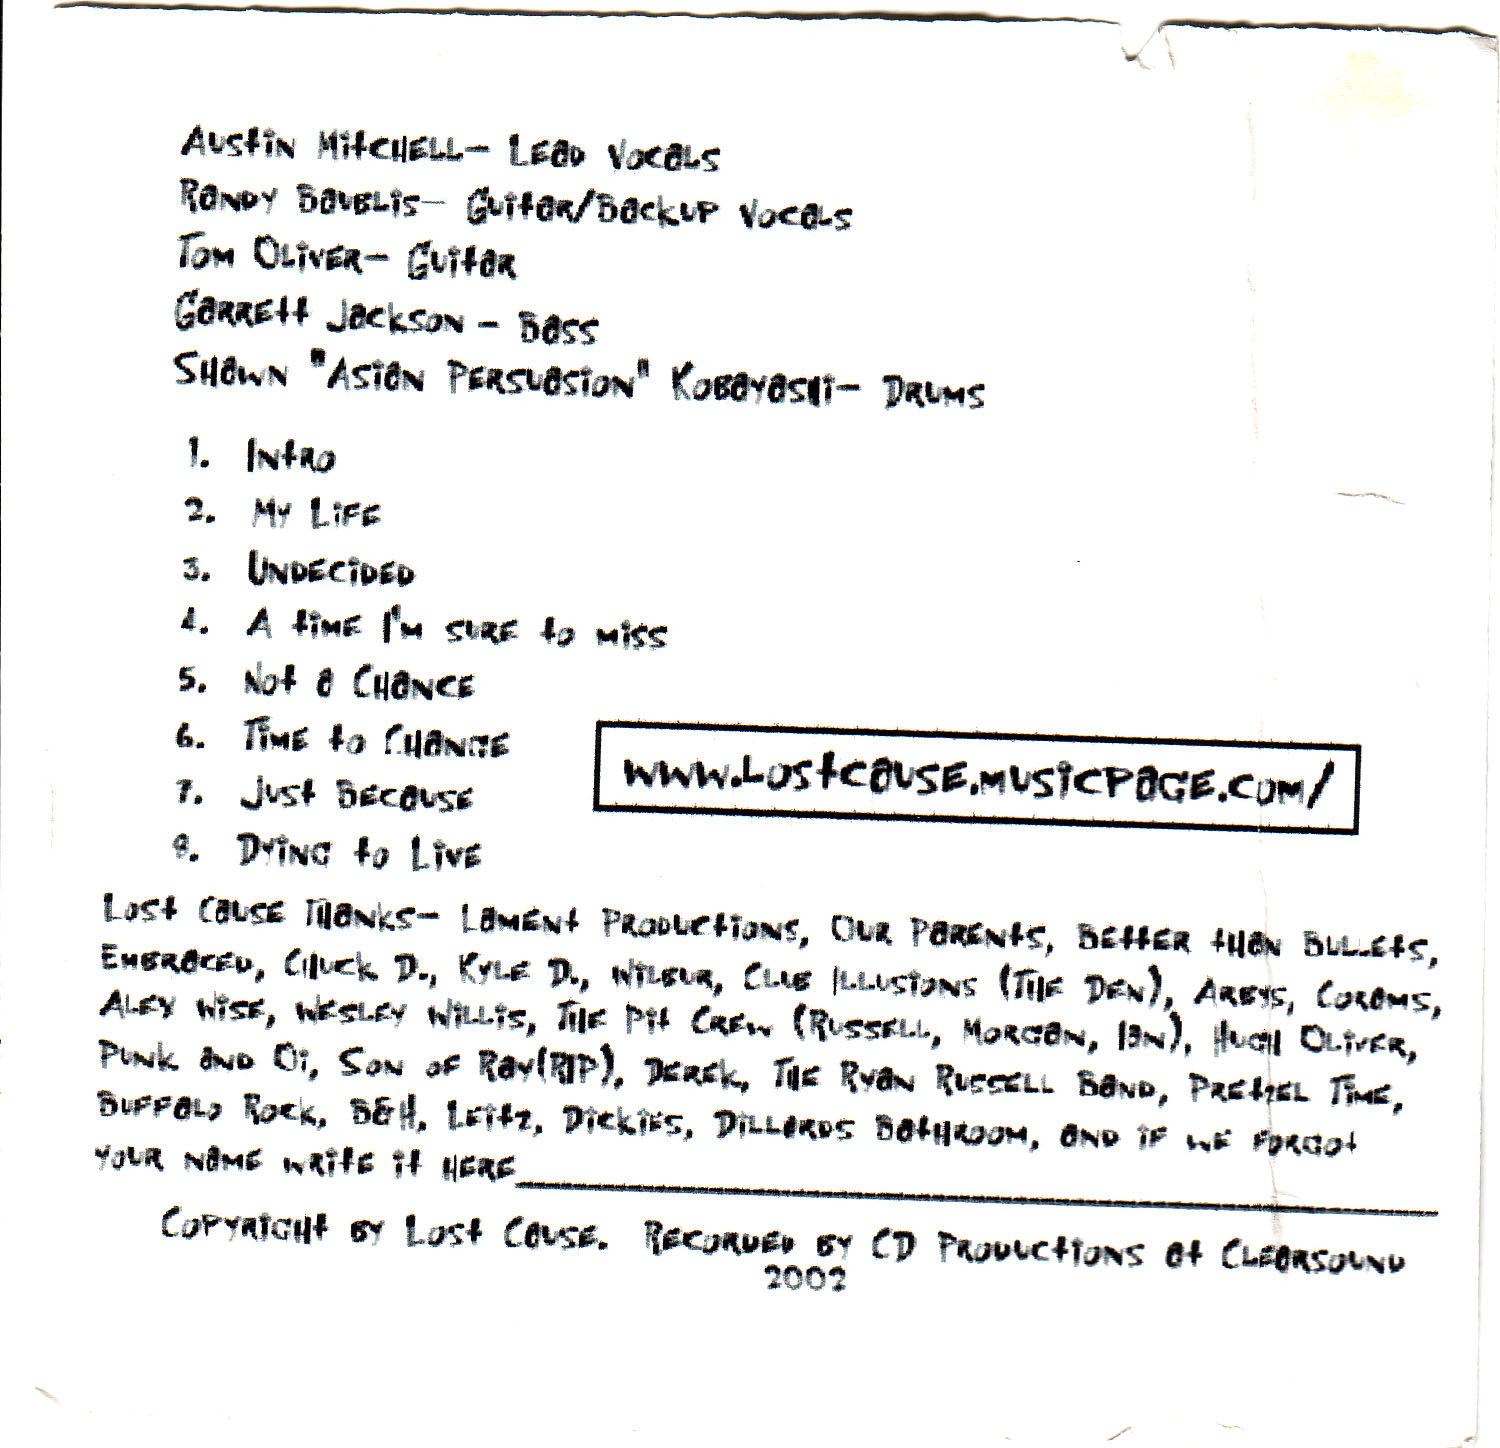 Austin Mitchell- Lead Vocals
Randy Bavelis- Guitar/Backup Vocals
Tom Oliver- Guitar
Garrett Jackson - Bass
Shawn "Asian Persuasion" Kobayashi- Drums
1. Intro
2. My Life
3. Undecided
4. A time I'm sure to miss
5. Not a Chance
6. Time to Change
7. Just Because
8. Dying to Live
www.lostcause.musicpage.com/
Lost Cause Thanks- Lament Productions, Our Parents, Better than Bullets,
Embraced, Chuck D., Kyle D., Wilbur, Club Illusions (The Den), Arbys, Corams,
Alex Wise, Wesley Willis, The Pit Crew (Russell, Morgan, Ian), Hugh Oliver,
Punk and Oi, Son of Ray(RIP), Derek, The Ryan Russell Band, Pretzel Time,
Buffalo Rock, B&H, Leitz, Dickies, Dillards Bathroom, and if we forgot
your name write it here
Copyright by Lost Cause. Recorded by CD Productions at Clearsound
2002